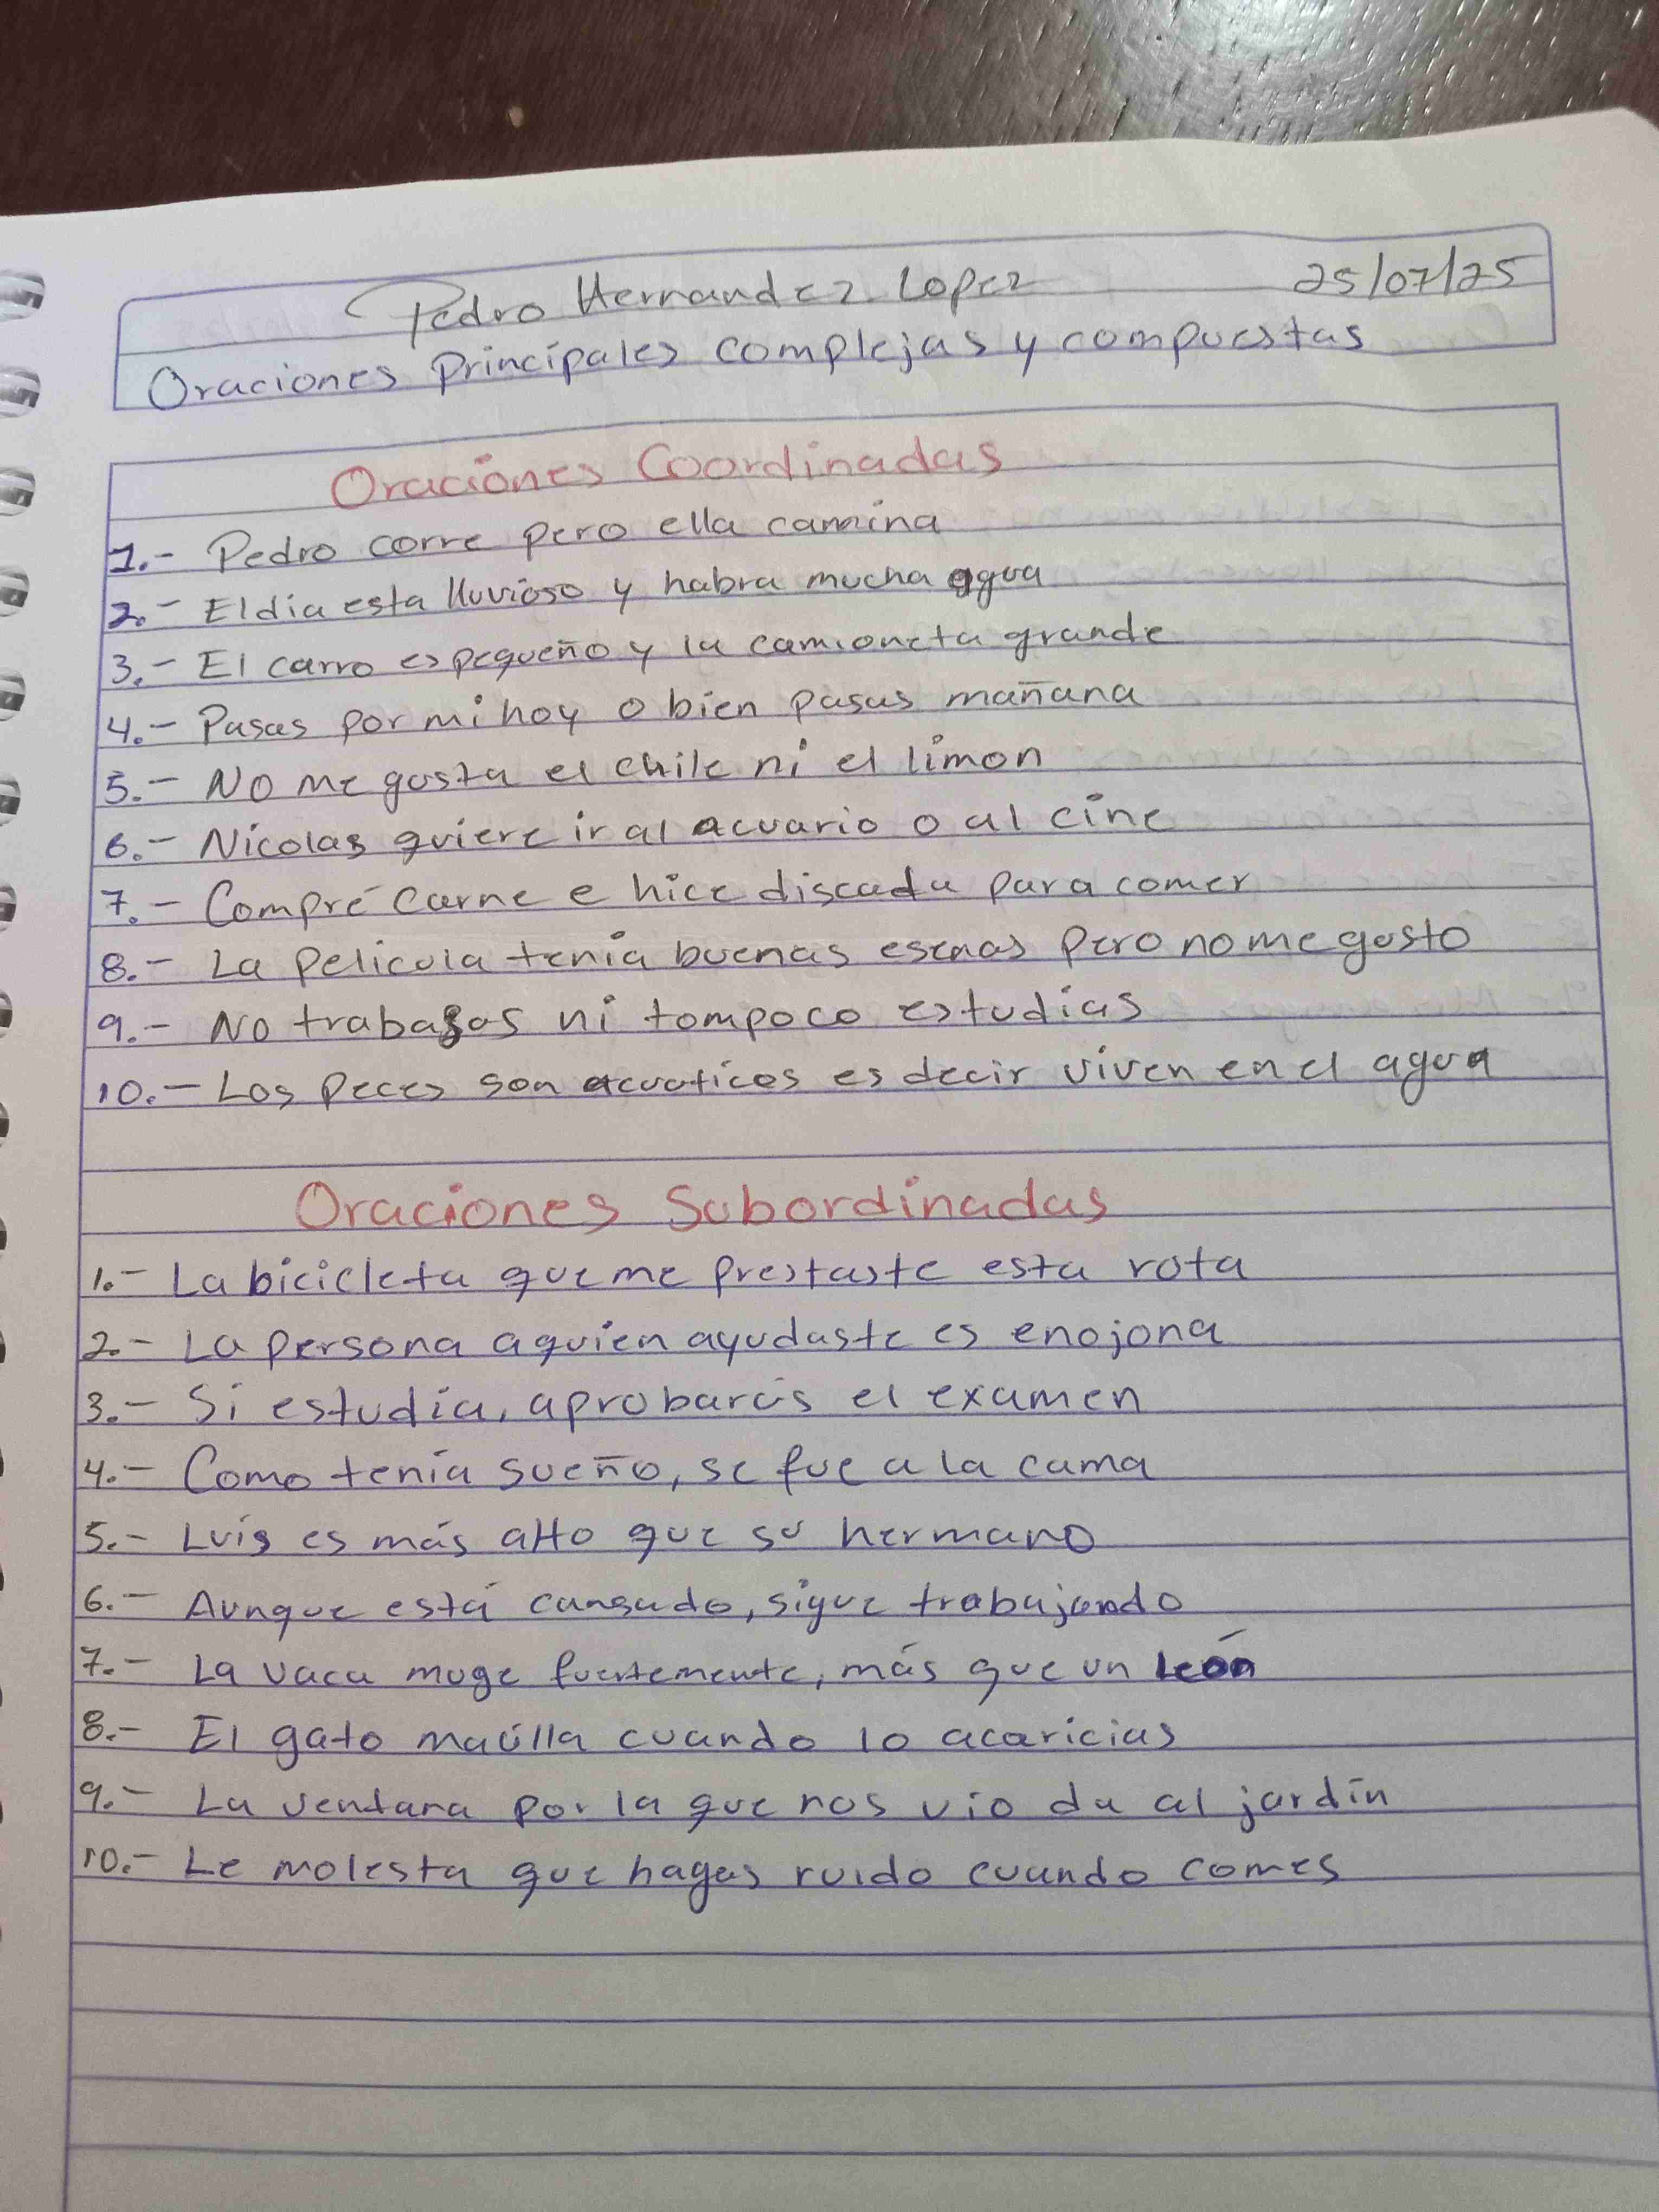 Pedro Hernandez Lopez 25/07/25
Oraciones Principales complejas y compuestas
Oraciones Coordinadas
1.- Pedro corre pero ella camina
2.- El dia esta lluvioso y habra mucha agua
3.- El carro es pequeño y la camioneta grande
4.- Pasas por mi hoy o bien pasas mañana
5.- No me gusta el chile ni el limon
6.- Nicolas quiere ir al acuario o al cine
7.- Compré carne e hice discada para comer
8.- La pelicula tenia buenas esenas pero no me gusto
9.- No trabajas ni tampoco estudias
10.- Los peces son acuaticos es decir viven en el agua
Oraciones Subordinadas
1.- La bicicleta que me prestaste esta rota
2.- La persona a quien ayudaste es enojona
3.- Si estudia, aprobarás el examen
4.- Como tenía sueño, se fue a la cama
5.- Luis es más alto que su hermano
6.- Aunque está cansado, sigue trabajando
7.- La vaca muge fuertemente, más que un león
8.- El gato maúlla cuando lo acaricias
9.- La ventana por la que nos vio da al jardín
10.- Le molesta que hagas ruido cuando comes